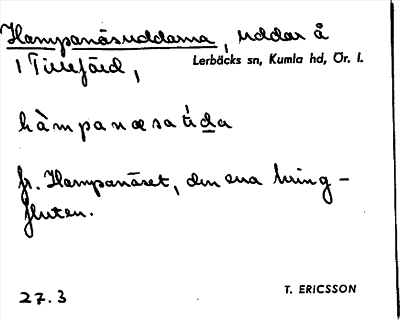 Hampanäsuddarna, uddar å
1 Tisefärd,
Lerbäcks sn, Kumla hd, Ör. l.
fr. Hampanäset, den ena kring-
fluten.
27.3
T. ERICSSON